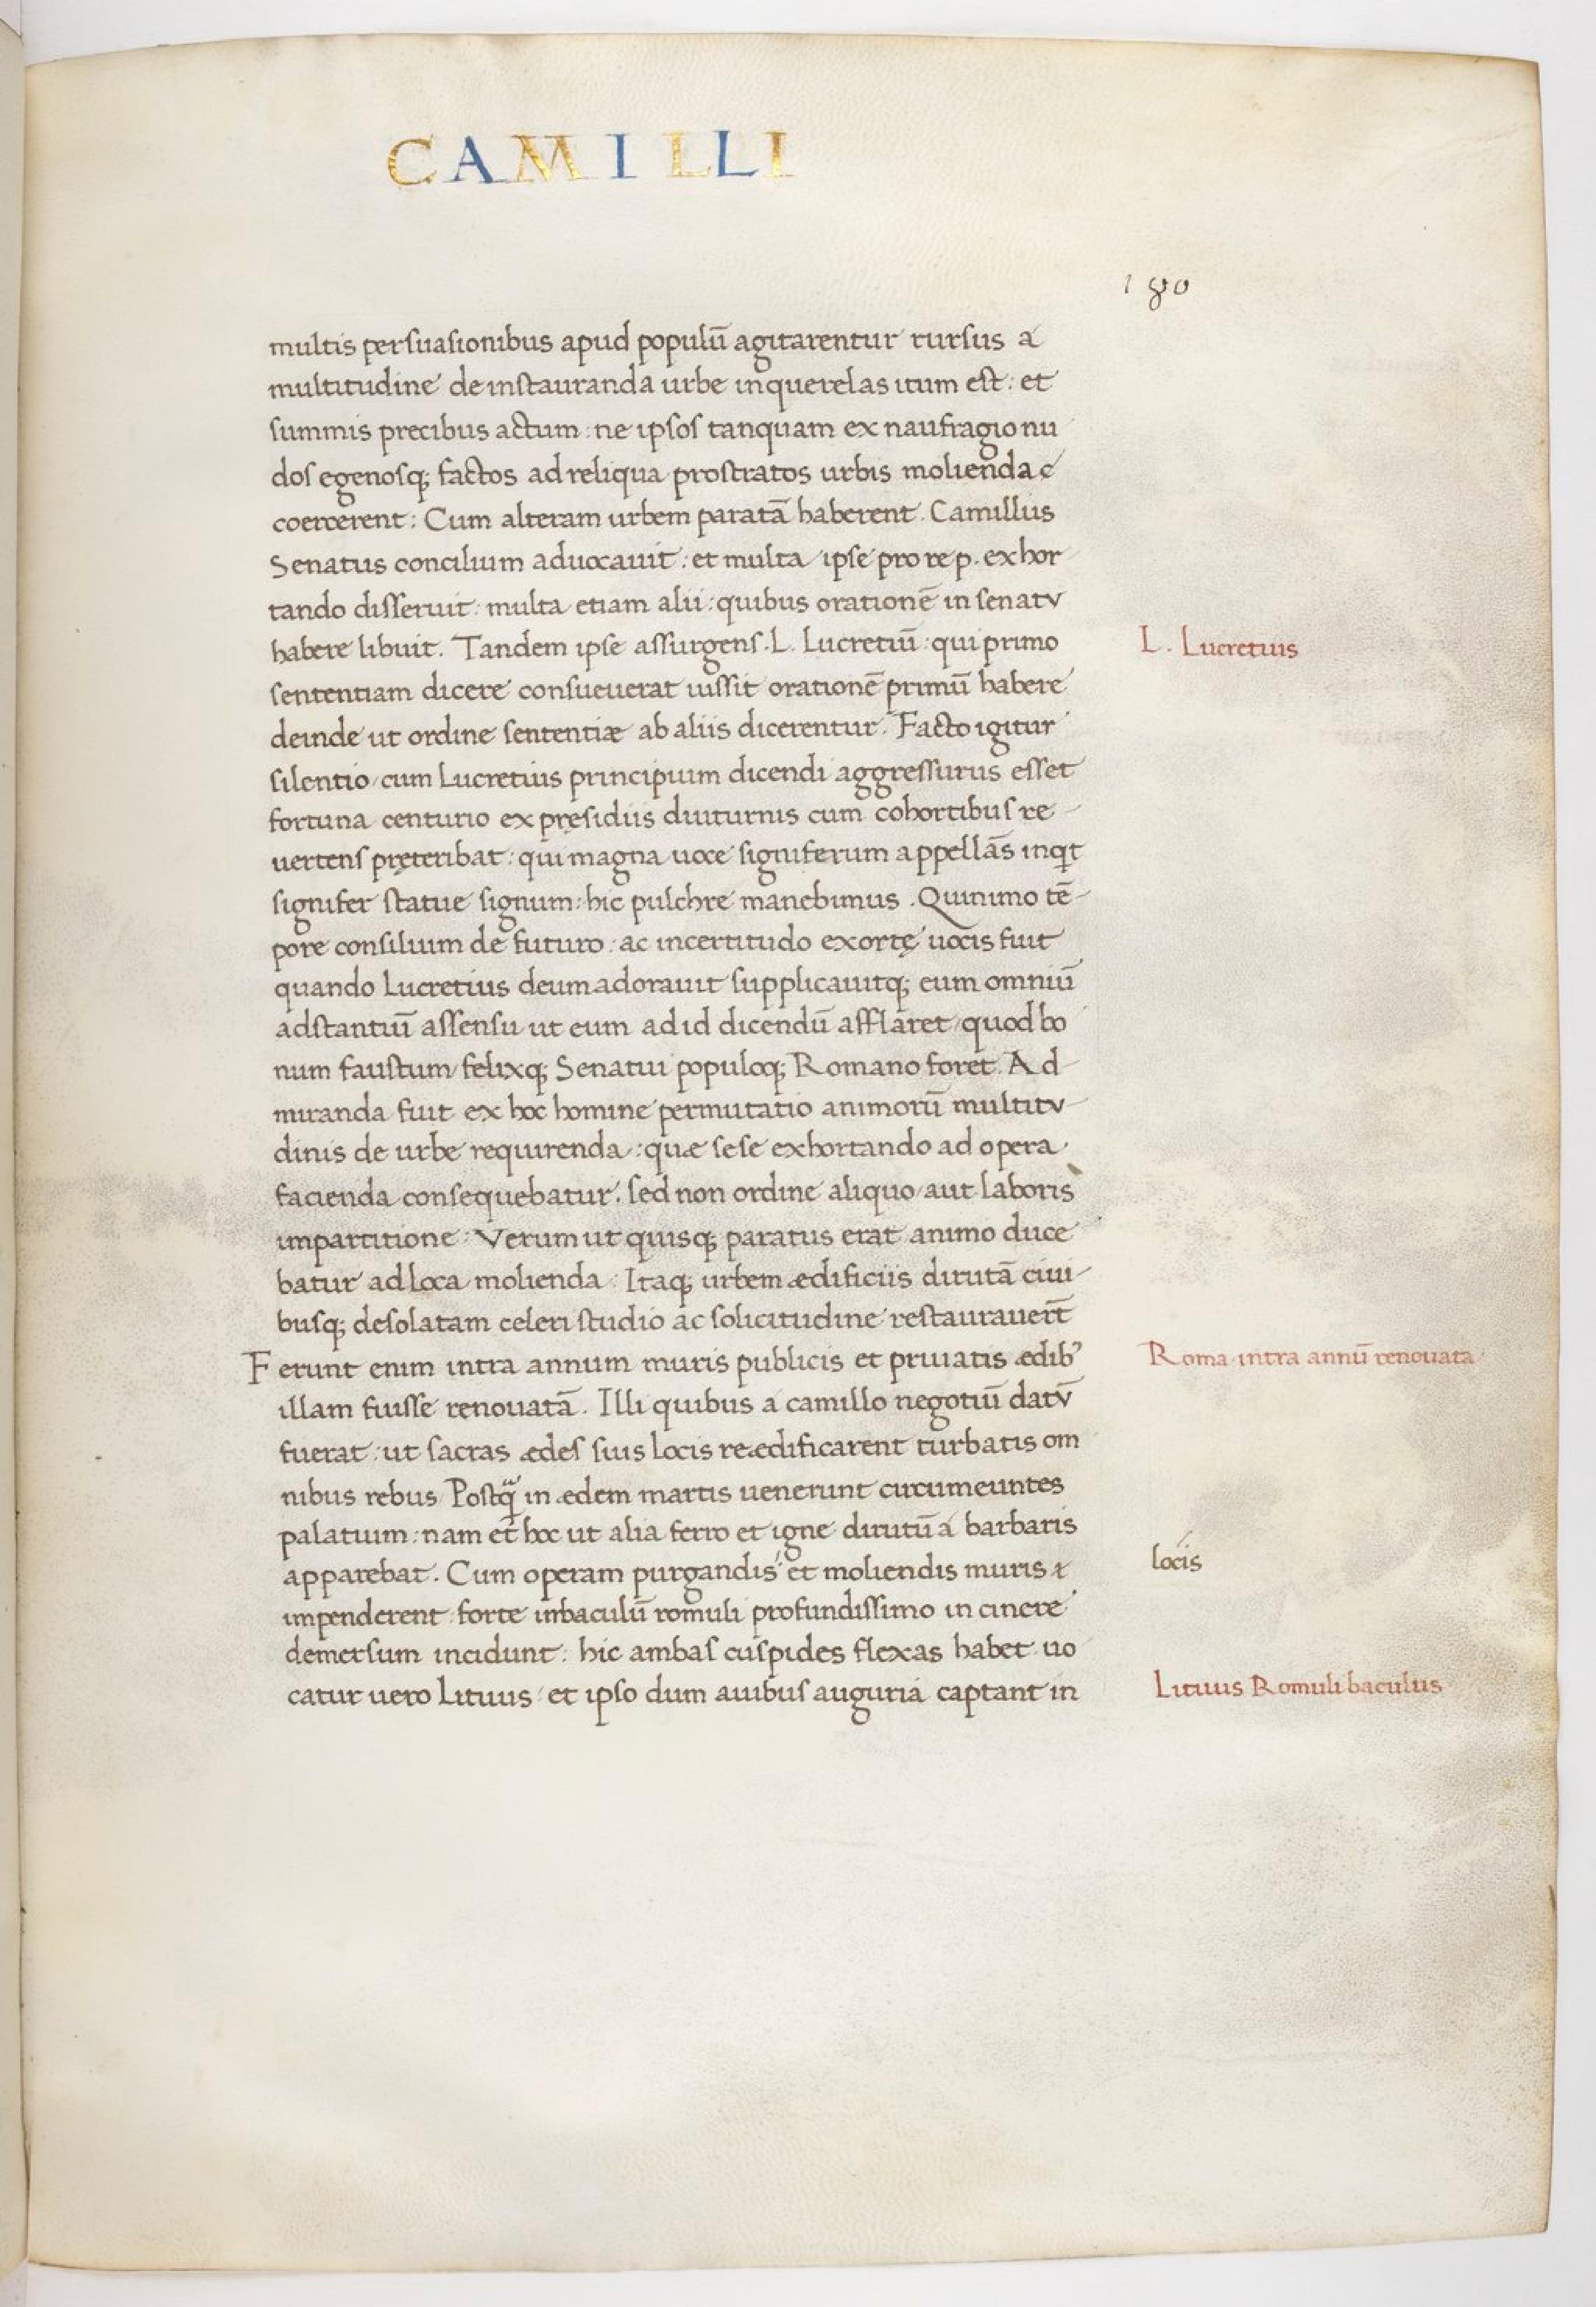 CAMILLI
180
multis persuasionibus apud populū agitarentur rursus a
multitudine de instauranda urbe in querelas itum est: et
summis precibus actum: ne ipsos tanquam ex naufragio nu
dos egenosq; factos ad reliqua prostratos urbis molienda
coercerent: Cum alteram urbem paratā haberent. Camillus
Senatus concilium aduocauit: et multa ipse pro re p. exhor
tando disseruit: multa etiam alii: quibus orationē in senatv
habere libuit. Tandem ipse assurgens. L. Lucretiū: qui primo
L. Lucretius
sententiam dicere consueuerat iussit orationē primū habere
deinde ut ordine sententiæ ab aliis dicerentur. Facto igitur
silentio/cum Lucretius principium dicendi aggressurus esset
fortuna centurio ex pręsidiis diuturnis cum cohortibus re-
uertens pręteribat: qui magna uoce signiferum appellās inqt
signifer statue signum: hic pulchre manebimus. Quinimo tē-
pore consilium de futuro: ac incertitudo exortę uocis fuit
quando Lucretius deum adorauit supplicauitq; eum omniū
adstantiū assensu ut eum ad id dicendū afflaret/quod bo
num faustum/felixq; Senatui populoq; Romano foret. Ad-
miranda fuit ex hoc homine permutatio animorū multitv-
dinis de urbe requirenda: quæ sese exhortando ad opera
facienda consequebatur. sed non ordine aliquo/aut laboris
impartitione: Verum ut quisq; paratus erat animo duce
batur ad loca molienda: Itaq; urbem ædificiis dirutā ciui-
busq; desolatam celeri studio ac solicitudine restaurauert̄
Ferunt enim intra annum muris publicis et priuatis ædib⁹
Roma intra annū renouata
illam fuisse renouatā. Illi quibus a camillo negotiū datv̄
fuerat: ut sacras ædes suis locis reædificarent turbatis om
nibus rebus/Postq̃ in ædem martis uenerunt circumeuntes
palatium: nam et hoc ut alia ferro et igne dirutū a barbaris
apparebat. Cum operam purgandis et moliendis muris
locis
impenderent forte in baculū romuli profundissimo in cinere
demersum incidunt: hic ambas cuspides flexas habet uo
catur uero Lituus: et ipso dum auibus auguria captant in
Lituus Romuli baculus